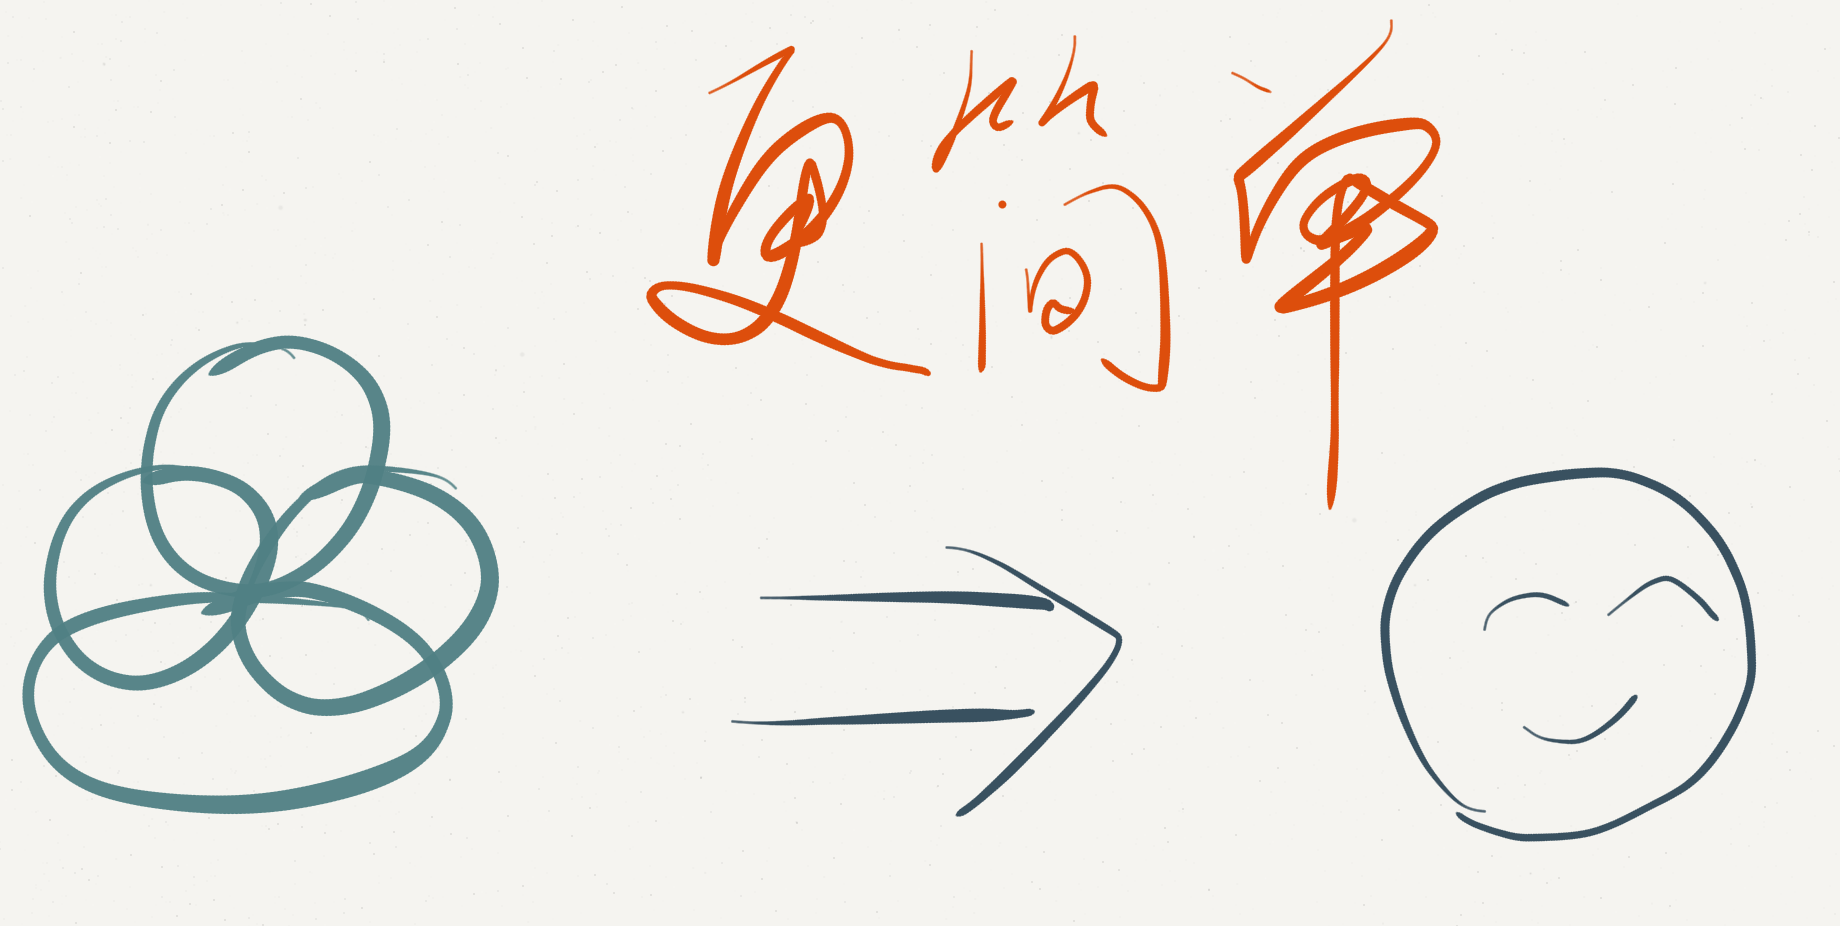 更简单